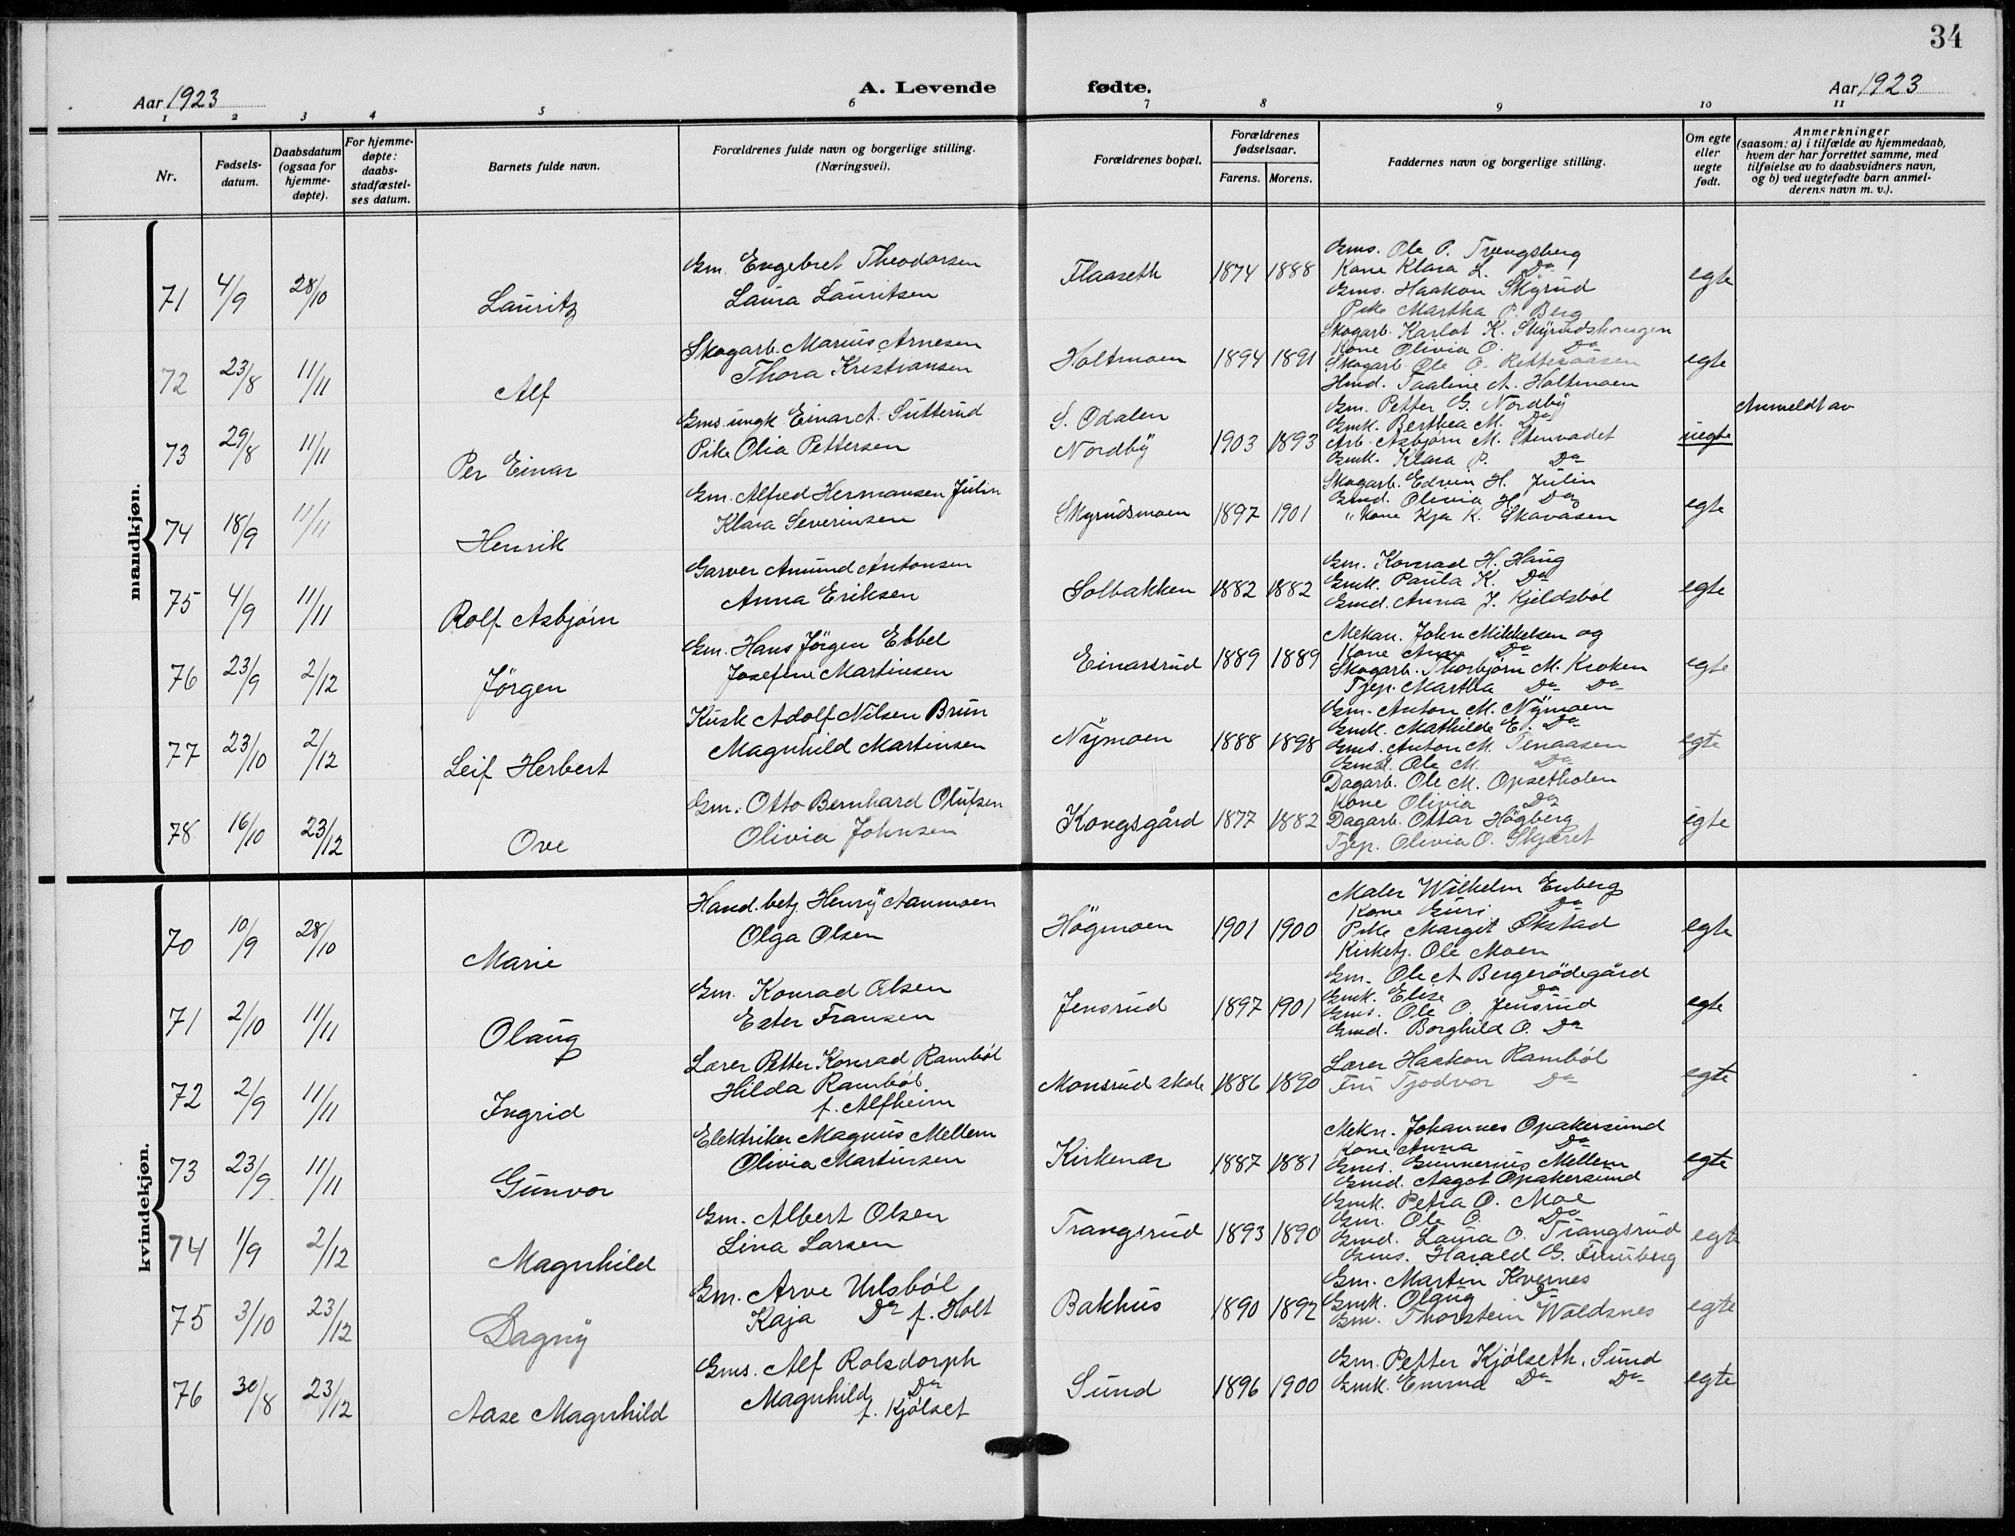 34
Aar 1923
A. Levende fødte.
Aar 1923
1 2 3 4 5 6 7 8 9 10 11
Nr.
Fødsels-
datum.
Daabsdatum
(ogsaa for
hjemme-
døpte).
For hjemme-
døpte:
daabs-
stadfæstel-
ses datum.
Barnets fulde navn.
Forældrenes fulde navn og borgerlige stilling.
(Næringsvei).
Forældrenes bopæl.
Forældrenes
fødselsaar.
Farens. Morens.
Faddernes navn og borgerlige stilling.
Om egte
eller
uegte
født.
Anmerkninger
(saasom: a) i tilfælde av hjemmedaab,
hvem der har forrettet samme, med
tilføielse av to daabsvidners navn,
og b) ved uegtefødte barn anmel-
derens navn m. v.).
mandkjøn.
71 4/9 28/10 Lauritz
Gm. Engebret Theodorsen
Laura Lauritsen
Flaaseth 1874 1888
Gms. Ole P. Trængsberg
Kone Klara L. Do
Gms. Haakon Skyrud
Pike Martha P. Berg
egte
72 23/8 11/11 Alf
Skogarb. Marius Arnesen
Thora Kristiansen
Holtmoen 1894 1891
Skogarb. Karlot K. Skyrudshaugen
Kone Olivia O. Do
Skogarb. Ole O. Rattenaasen
Hmd. Paaline A. Holtmoen
egte
73 29/8 11/11 Per Einar
Gms. ungk Einar A. Sutterud
Pike Olia Pettersen
S. Odalen
Nordby 1903 1893
Gm. Petter G. Nordby
Gmk. Berthea M. Do
Arb. Asbjørn M. Stenvadet
Gmk. Klara P. Do
uegte
Anmeldt av
74 18/9 11/11 Henrik
Gm. Alfred Hermansen Julin
Klara Severinsen
Skyrudsmoen 1897 1901
Skogarb. Edvin H. Julin
Gmd. Olivia H. Do
" Kone Kja K. Skavåsen
egte
75 4/9 11/11 Rolf Asbjørn
Garver Amund Antonsen
Anna Eriksen
Solbakken 1882 1882
Gm. Konrad H. Haug
Gmk. Paula K. Do
Gmd. Anna J. Kjeldsböl
egte
76 23/9 2/12 Jörgen
Gm. Hans Jörgen Ebbel
Josefine Martinsen
Einarsrud 1889 1889
Mekan. John Mikkelsen og
Kone Anna Do
Skogarb. Thorbjørn M. Kroken
Tjep. Martha Do Do
egte
77 23/10 2/12 Leif Herbert
Kusk Adolf Nilsen Brun
Magnhild Martinsen
Nymoen 1888 1898
Gm. Anton M. Nymoen
Gmk. Mathilde E. Do
Gms. Anton M. Tenaasen
Gmd. Ole M. Do
egte
78 16/10 23/12 Ove
Gm. Otto Bernhard Olufsen
Olivia Johnsen
Kongsgård 1877 1882
Dagarb. Ole M. Opsetholen
Kone Olivia Do
Dagarb. Ottar Högberg
Tjep. Olivia O. Skjæret
egte
kvindekjøn.
70 10/9 28/10 Marie
Hand.betj. Henry Aanmoen
Olga Olsen
Högmoen 1901 1900
Maler Wilhelm Enberg
Kone Guri Do
Pike Margit Økstad
Kirketj. Ole Moen
egte
71 2/10 11/11 Olaug
Gm. Konrad Olsen
Ester Fransen
Jensrud 1897 1901
Gm. Ole A Bergerödegård
Gmk. Elise Do
Gms. Ole O. Jensrud
Gmd. Borghild O. Do
egte
72 2/9 11/11 Ingrid
Lærer Petter Konrad Ramböl
Hilda Ramböl
f. Alfheim
Monsrud skole 1886 1890
Lærer Haakon Ramböl
Fru Tjodvor Do
egte
73 23/9 11/11 Gunvor
Elektriker Magnus Mellem
Olivia Martinsen
Kirkenær 1887 1881
Mekn. Johannes Opakersund
Kone Anna Do
Gms. Gunnerius Mellem
Gmd. Aagot Opakersund
egte
74 1/9 2/12 Magnhild
Gm. Albert Olsen
Lina Larsen
Trangsrud 1893 1890
Gmk. Petra O. Moe
Gm. Ole O. Do
Gmd. Laura O. Trangsrud
Gms. Harald G. Furuberg
egte
75 3/10 23/12 Dagny
Gm. Arve Ulsböl
Kaja Do f. Holt
Bakhus 1890 1892
Gm. Martin Kvernes
Gmk. Olaug Do
Gm. Thorstein Woldsnes
egte
76 30/8 23/12 Aase Magnhild
Gms. Alf Rolsdorph
Magnhild Do
f. Kjölset
Sund 1896 1900
Gm. Petter Kjölseth, Sund
Gmk. Emma Do Do
egte